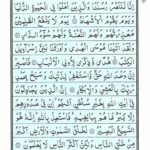 إِنَّا لَنَنصُرُ رُسُلَنَا وَالَّذِينَ ءَامَنُوا فِي الْحَيَوٰةِ الدُّنْيَا
وَيَوْمَ يَقُومُ الْأَشْهَٰدُ يَوْمَ لَا يَنفَعُ الظَّٰلِمِينَ
مَعْذِرَتُهُمْ وَلَهُمُ اللَّعْنَةُ وَلَهُمْ سُوءُ الدَّارِ
وَلَقَدْ ءَاتَيْنَا مُوسَى الْهُدَىٰ وَأَوْرَثْنَا بَنِي إِسْرَٰٓءِيلَ
الْكِتَٰبَ هُدًى وَذِكْرَىٰ لِأُولِي الْأَلْبَٰبِ فَاصْبِرْ
إِنَّ وَعْدَ اللَّهِ حَقٌّ وَاسْتَغْفِرْ لِذَنبِكَ وَسَبِّحْ بِحَمْدِ
رَبِّكَ بِالْعَشِيِّ وَالْإِبْكَٰرِ إِنَّ الَّذِينَ يُجَٰدِلُونَ فِي
ءَايَٰتِ اللَّهِ بِغَيْرِ سُلْطَٰنٍ أَتَىٰهُمْ إِن فِي صُدُورِهِمْ
إِلَّا كِبْرٌ مَّا هُم بِبَٰلِغِيهِ فَاسْتَعِذْ بِاللَّهِ إِنَّهُ هُوَ
السَّمِيعُ الْبَصِيرُ لَخَلْقُ السَّمَٰوَٰتِ وَالْأَرْضِ أَكْبَرُ
مِنْ خَلْقِ النَّاسِ وَلَٰكِنَّ أَكْثَرَ النَّاسِ لَا يَعْلَمُونَ